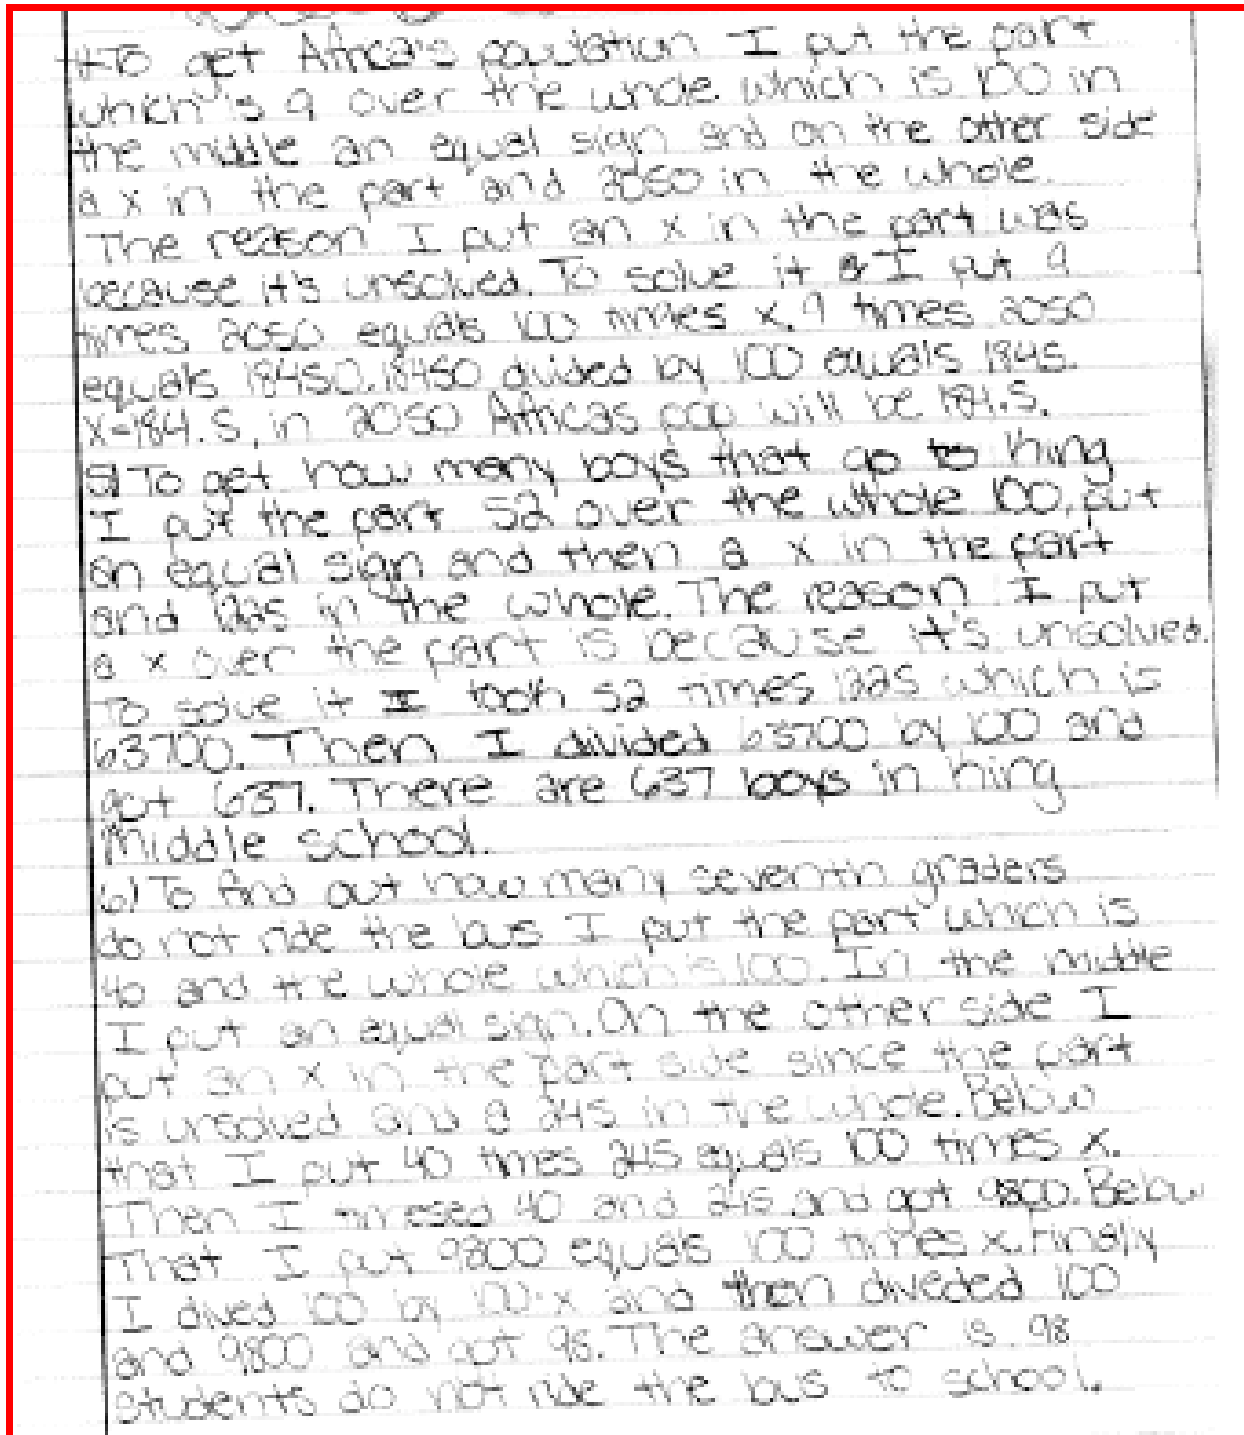 4) To get Africa's poulation I put the part
which is 9 over the whole which is 100 in
the middle an equal sign and on the other side
a x in the part and 2050 in the whole.
The reason I put an x in the part was
because it's unsolved. To solve it I put 9
times 2050 equals 100 times x. 9 times 2050
equals 18450. 18450 divided by 100 equals 184.5.
x=184.5, in 2050 Africas pop will be 184.5.
5) To get how many boys that go to King
I put the part 52 over the whole 100, put
an equal sign and then a x in the part
and 1225 in the whole. The reason I put
a x over the part is because it's unsolved.
To solve it I took 52 times 1225 which is
63700. Then I divided 63700 by 100 and
got 637. There are 637 boys in King
Middle school.
6) To find out how many seventh graders
do not ride the bus I put the part which is
40 and the whole which is 100. In the middle
I put an equal sign. On the other side I
put an x in the part side since the part
is unsolved and a 245 in the whole. Below
that I put 40 times 245 equals 100 times x.
Then I timesed 40 and 245 and got 9800. Below
That I put 9800 equals 100 times x. Finally
I dived 100 by 100·x and then diveded 100
and 9800 and got 98. The answer is 98
students do not ride the bus to school.